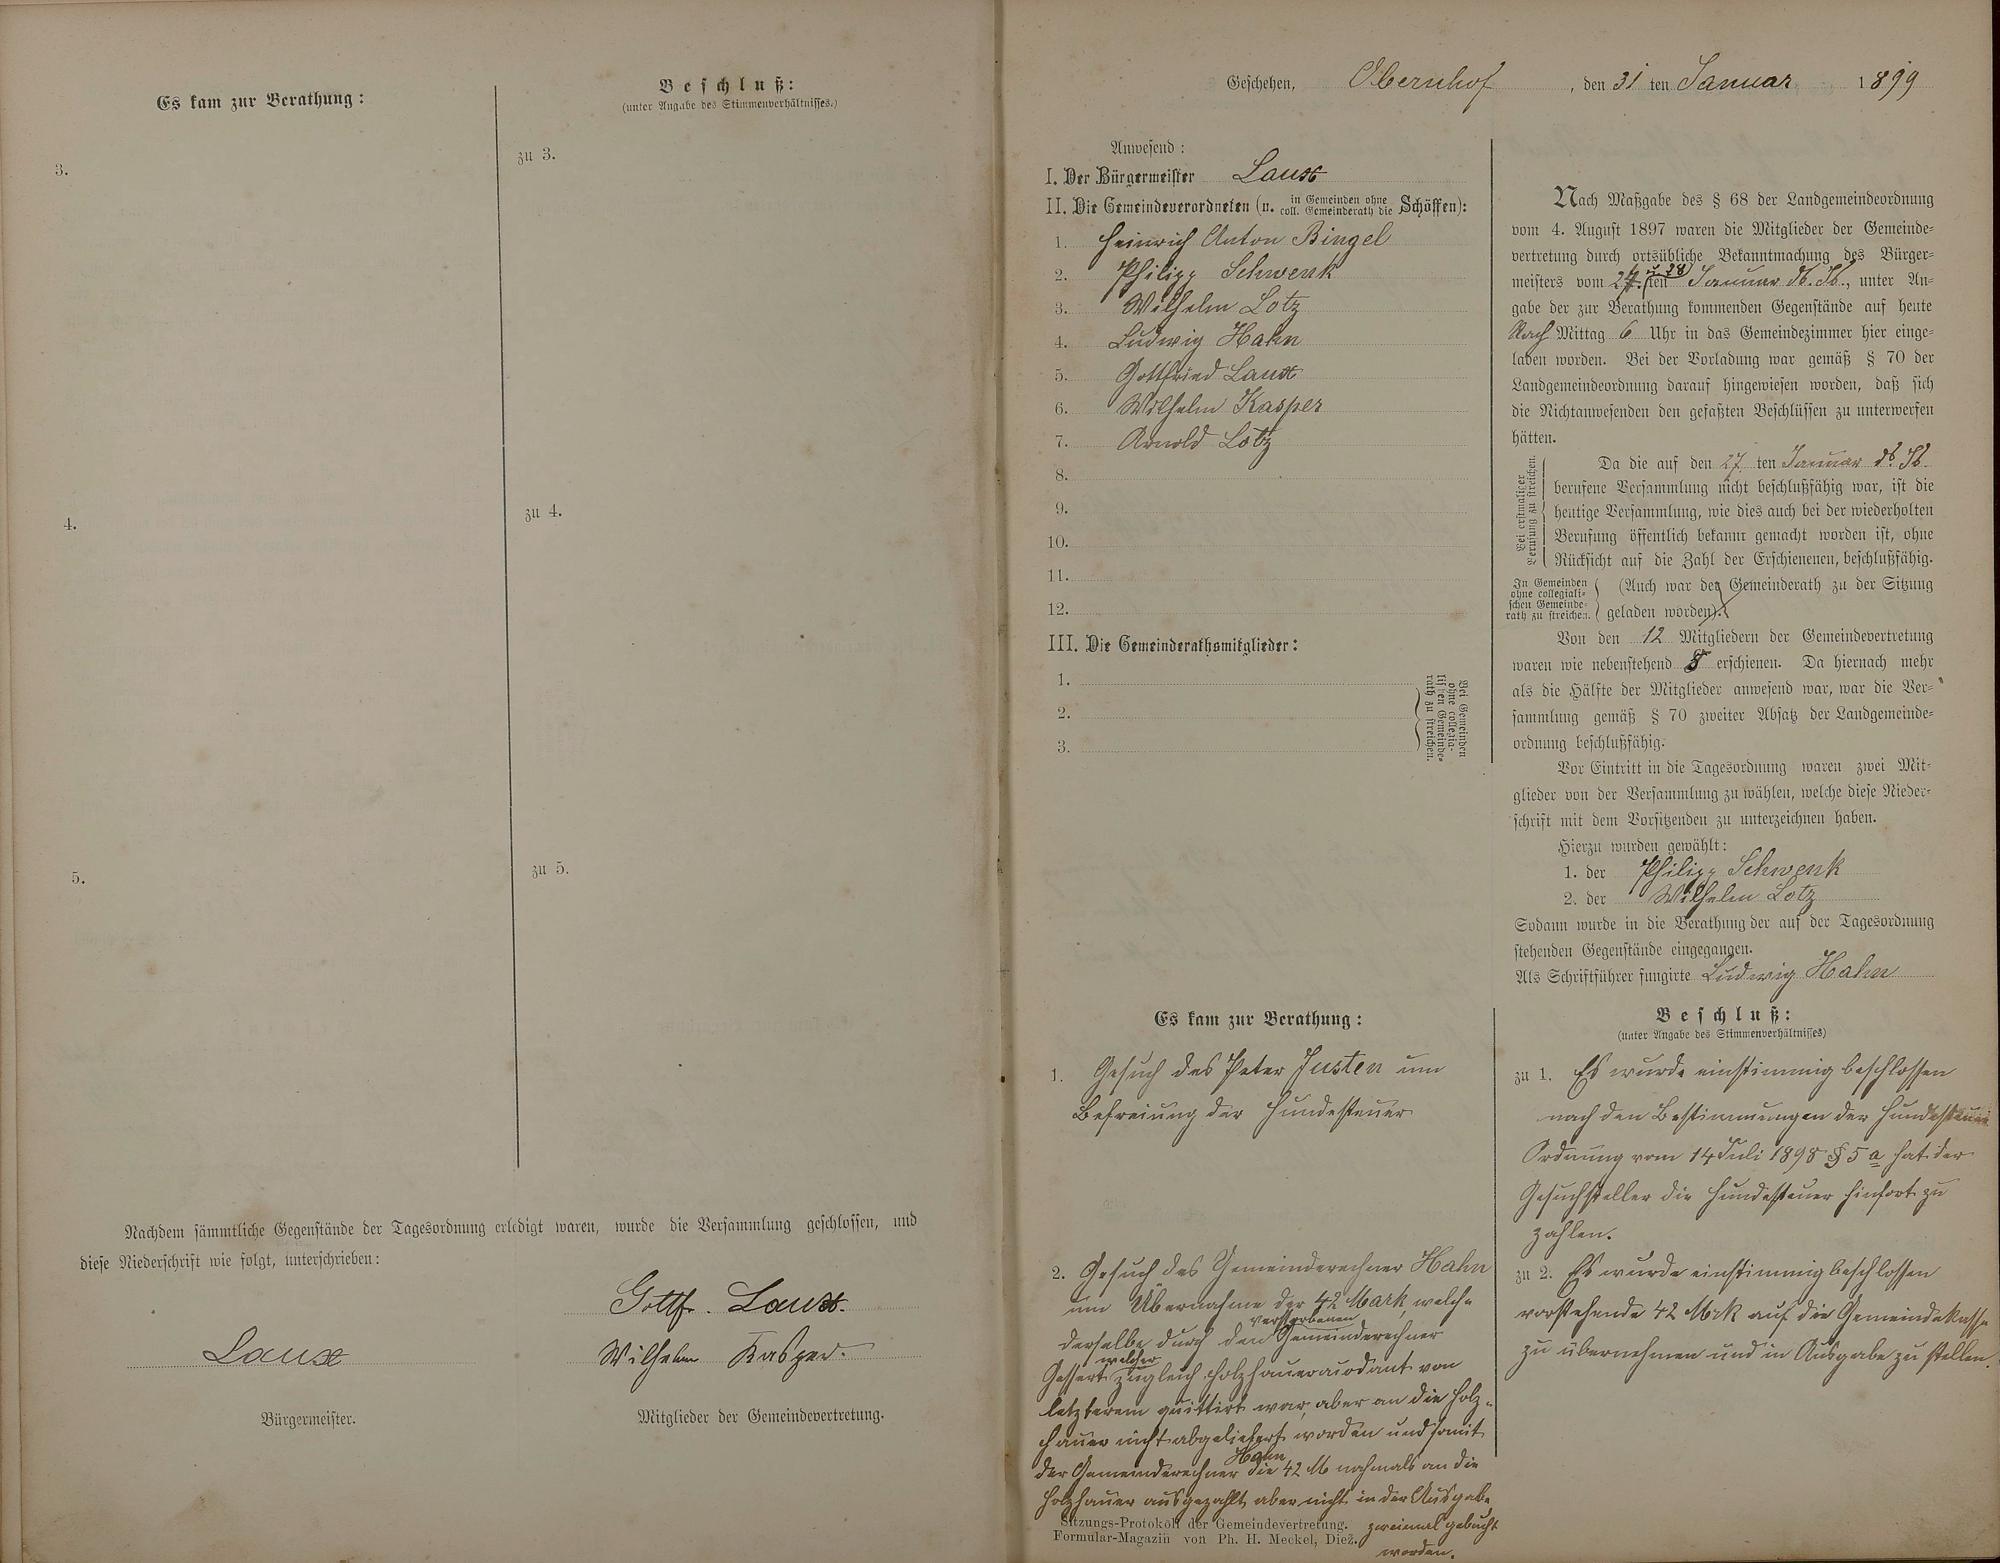 Es kam zur Berathung:
Beschluß:
(unter Angabe des Stimmenverhältnisses.)
3.
zu 3.
4.
zu 4.
5.
zu 5.
Nachdem sämmtliche Gegenstände der Tagesordnung erledigt waren, wurde die Versammlung geschlossen, und
diese Niederschrift wie folgt, unterschrieben:
Gottfr. Laux.
Laux
Wilhelm Kasper.
Bürgermeister.
Mitglieder der Gemeindevertretung.
Geschehen, Obernhof, den 31 ten Januar 1899
Anwesend:
I. Der Bürgermeister Laux
II. Die Gemeindeverordneten (u. in Gemeinden ohne coll. Gemeinderath die Schöffen):
1. Heinrich Anton Bingel
2. Philipp Schwenk
3. Wilhelm Lotz
4. Ludwig Hahn
5. Gottfried Laux
6. Wilhelm Kasper
7. Arnold Lotz
8.
9.
10.
11.
12.
III. Die Gemeinderathsmitglieder:
1.
2.
3.
Bei Gemeinden
ohne collegia-
lischen Gemeinde-
rath zu streichen.
Nach Maßgabe des § 68 der Landgemeindeordnung
vom 4. August 1897 waren die Mitglieder der Gemeinde-
vertretung durch ortsübliche Bekanntmachung des Bürger-
meisters vom 27. u. 28 ten Januar ds. Js., unter An-
gabe der zur Berathung kommenden Gegenstände auf heute
Nach Mittag 6 Uhr in das Gemeindezimmer hier einge-
laden worden. Bei der Vorladung war gemäß § 70 der
Landgemeindeordnung darauf hingewiesen worden, daß sich
die Nichtanwesenden den gefaßten Beschlüssen zu unterwerfen
hätten.
Bei erstmaliger
Berufung zu streichen.
Da die auf den 27. ten Januar ds. Js.
berufene Versammlung nicht beschlußfähig war, ist die
heutige Versammlung, wie dies auch bei der wiederholten
Berufung öffentlich bekannt gemacht worden ist, ohne
Rücksicht auf die Zahl der Erschienenen, beschlußfähig.
In Gemeinden
ohne collegiali-
schen Gemeinde-
rath zu streichen.
(Auch war der Gemeinderath zu der Sitzung
geladen worden).
Von den 12 Mitgliedern der Gemeindevertretung
waren wie nebenstehend 8 erschienen. Da hiernach mehr
als die Hälfte der Mitglieder anwesend war, war die Ver-
sammlung gemäß § 70 zweiter Absatz der Landgemeinde-
ordnung beschlußfähig.
Vor Eintritt in die Tagesordnung waren zwei Mit-
glieder von der Versammlung zu wählen, welche diese Nieder-
schrift mit dem Vorsitzenden zu unterzeichnen haben.
Hierzu wurden gewählt:
1. der Philipp Schwenk
2. der Wilhelm Lotz
Sodann wurde in die Berathung der auf der Tagesordnung
stehenden Gegenstände eingegangen.
Als Schriftführer fungirte Ludwig Hahn
Es kam zur Berathung:
1. Gesuch des Peter Justen um
Befreiung der Hundesteuer
2. Gesuch des Gemeinderechner Hahn
um Übernahme der 42 Mark, welche
derselbe durch den verstorbenen Gemeinderechner
Gessert welcher zugleich Holzhaueraccordant von
letzterem quittirt war, aber an die Holz-
hauer nicht abgeliefert worden und somit
der Gemeinderechner Hahn die 42 M nochmals an die
Holzhauer ausgezahlt aber nicht in der Ausgabe
zweimal gebucht
worden.
Sitzungs-Protokoll der Gemeindevertretung.
Formular-Magazin von Ph. H. Meckel, Diez.
Beschluß:
(unter Angabe des Stimmenverhältnisses)
zu 1. Es wurde einstimmig beschlossen
nach den Bestimmungen der Hundesteuer
Ordnung vom 14 Juli 1898 § 5 a hat der
Gesuchsteller die Hundesteuer hinfort zu
zahlen.
zu 2. Es wurde einstimmig beschlossen
vorstehende 42 Mrk auf die Gemeindekasse
zu übernehmen und in Ausgabe zu stellen.